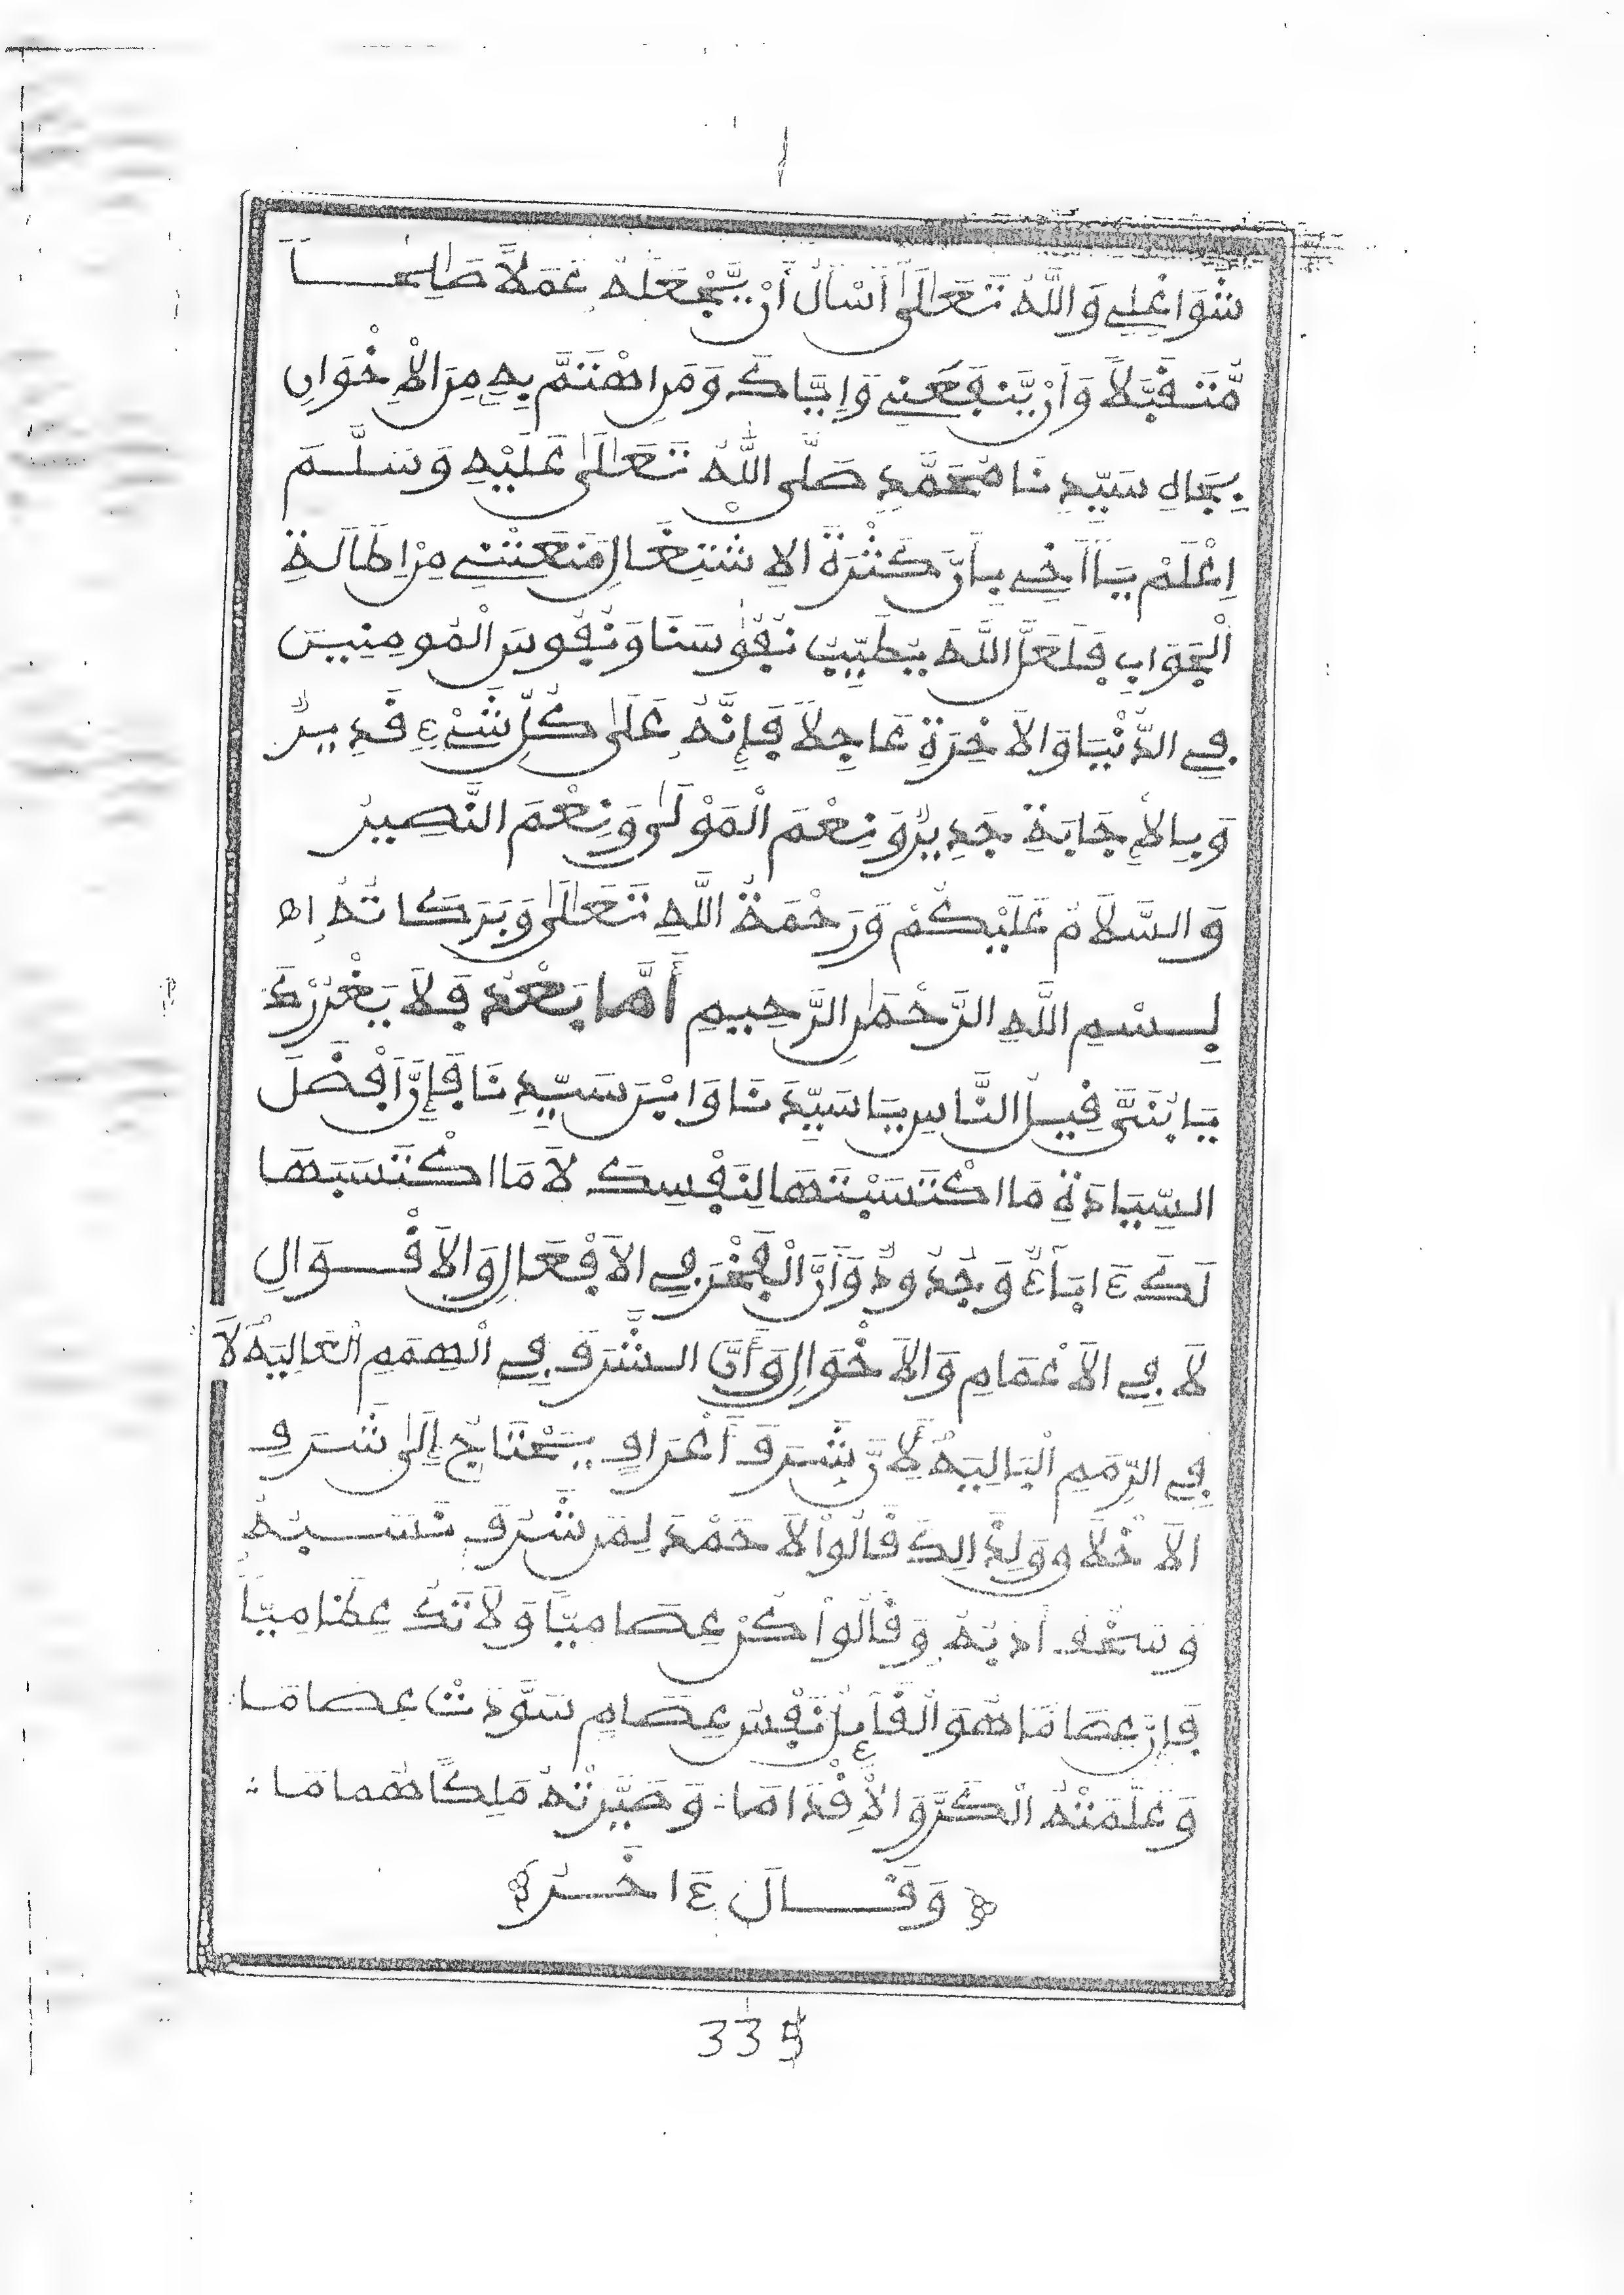 شَوَاغِلِي وَاللَّهَ تَعَالَى أَسْأَلُ أَنْ يَّجْعَلَهُ عَمَلًا صَالِحًا
مُّتَقَبَّلًا وَأَنْ يَّنفَعَنِي وَإِيَّاكَ وَمَنِ اهْتَمَّ بِهِ مِنَ الْإِخْوَانِ
بِجَاهِ سَيِّدِنَا مُحَمَّدٍ صَلَّى اللَّهُ تَعَالَى عَلَيْهِ وَسَلَّمَ
اِعْلَمْ يَا أَخِي بِأَنَّ كَثْرَةَ الِاشْتِغَالِ مَنَعَتْنِي مِنْ إِطَالَةِ
الْجَوَابِ فَلَعَلَّ اللَّهَ يُطَيِّبُ نُفُوسَنَا وَنُفُوسَ الْمُومِنِينَ
فِي الدُّنْيَا وَالْآخِرَةِ عَاجِلًا فَإِنَّهُ عَلَى كُلِّ شَيْءٍ قَدِيرٌ
وَبِالْإِجَابَةِ جَدِيرٌ وَنِعْمَ الْمَوْلَى وَنِعْمَ النَّصِيرُ
وَالسَّلَامُ عَلَيْكُمْ وَرَحْمَةُ اللَّهِ تَعَالَى وَبَرَكَاتُهُ اهـ
بِسْمِ اللَّهِ الرَّحْمَنِ الرَّحِيمِ أَمَّا بَعْدُ فَلَا يَغْرُرْكَ
يَا بُنَيَّ قِيلُ النَّاسِ يَا سَيِّدَنَا وَابْنَ سَيِّدِنَا فَإِنَّ أَفْضَلَ
السِّيَادَةِ مَا اكْتَسَبْتَهَا لِنَفْسِكَ لَا مَا اكْتَسَبَهَا
لَكَ ءَابَاءٌ وَجُدُودٌ وَأَنَّ الْفَخْرَ فِي الْأَفْعَالِ وَالْأَقْوَالِ
لَا فِي الْأَعْمَامِ وَالْأَخْوَالِ وَأَنَّ الشَّرَفَ فِي الْهِمَمِ الْعَالِيَهْ لَا
فِي الرِّمَمِ الْبَالِيَهْ لِأَنَّ شَرَفَ أَعْرَاقٍ يَحْتَاجُ إِلَى شَرَفِ
الْأَخْلَاقِ وَلِذَالِكَ قَالُوا لَا حَمْدَ لِمَن شَرُفَ نَسَبُهُ
وَسَخُفَ أَدَبُهُ وَقَالُوا كُنْ عِصَامِيًّا وَلَا تَكُ عِظَامِيًّا
فَإِنَّ عِصَامًا هُوَ الْقَائِلُ نَفْسُ عِصَامٍ سَوَّدَتْ عِصَامَا
وَعَلَّمَتْهُ الْكَرَّ وَالْإِقْدَامَا ∴ وَصَيَّرَتْهُ مَلِكًا هُمَامَا ∴
وَقَالَ ءَاخَرُ
335